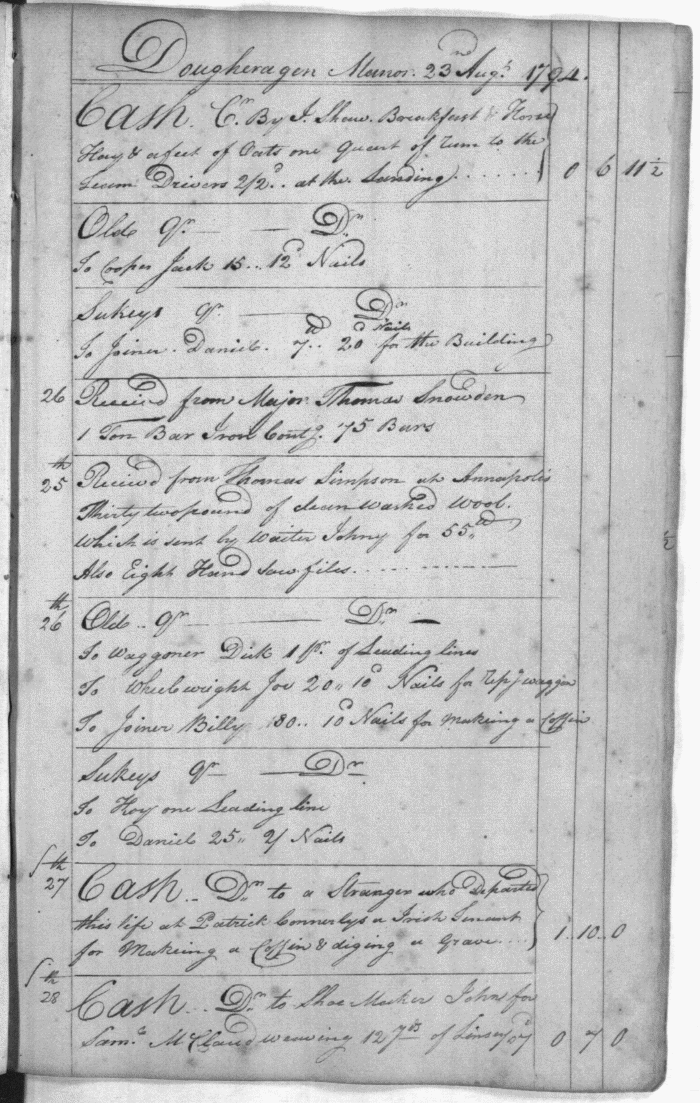 Dougheragen Manor. 23rd Augt. 1794.
Cash. Cr. By J. Shaw. Breakfast & Horse
Hay & a feet of Oats one Quart of Rum to the
Team Drivers 2/2d.. at the Landing....... 0 6 11½
Old Qr. — — Dr.
To Cooper Jack 15.. 12d Nails
Sukeys Qr. — Dr.
To Joiner. Daniel. 7lb.. 20d Nails for the Building
26 Received from Major Thomas Snowden
1 Ton Bar Iron Contg. 75 Bars
25th Received from Thomas Simpson at Annapolis
Thirty two pound of clean washed Wool.
Which is sent by Waiter Johny for 55..
Also Eight Hand Saw files.........
26th Old.. Qr — — Dr. —
To Waggoner Dick 1 pr. of Leading lines
To Wheelwright Joe 20.. 10d Nails for Repg waggon
To Joiner Billy 80.. 10d Nails for Making a Coffin
Sukeys Qr — Dr.
To Hoy one Leading line
To Daniel 25.. Nails
27th Cash.. Dr. to a Stranger who Departed
this life at Patrick Connerlys a Irish Servant
for Making a Coffin & diging a Grave.... 1..10..0
28th Cash... Dr. to Shoe Maker Johns for
Saml. McClaud weaving of Linsey 0 7 0
½